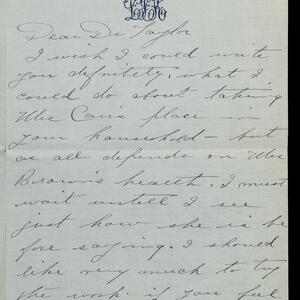 Dear Dr Taylor
I wish I could write
you definitely, what I
could do about taking
Mrs Cair's place in
your household - but
as all depends on Mrs
Brown's health. I must
wait untill I see
just how she is be
fore saying. I should
like very much to try
the work if you feel